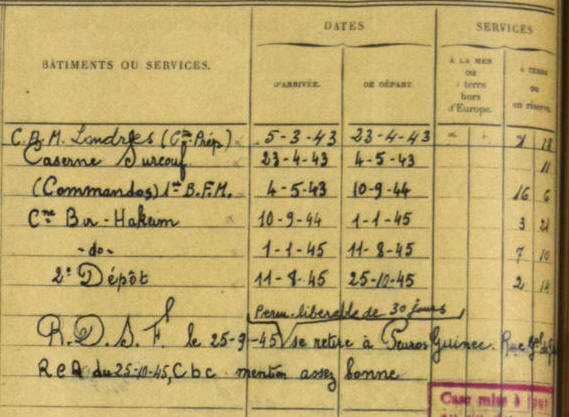 DATES SERVICES
BÂTIMENTS OU SERVICES. D'ARRIVÉE. DE DÉPART. À LA MER OU à terre hors d'Europe. à terre ou en réserve
C.B.M. Londres (Cⁿᵉ Prép.) 5-3-43 23-4-43 1 18
Caserne Surcouf 23-4-43 4-5-43 11
(Commandos) 1ᵉʳ B.F.M. 4-5-43 10-9-44 16 6
Cⁿᵉ Bir-Hakeim 10-9-44 1-1-45 3 21
-do- 1-1-45 11-8-45 7 10
2ᵉ Dépôt 11-8-45 25-10-45 2 14
Perm. libérable de 30 jours
R.D.S.F. le 25-9-45 se retire à Guinec. Rue
R e R du 25-10-45, C b c mention assez bonne
Case mise à jour